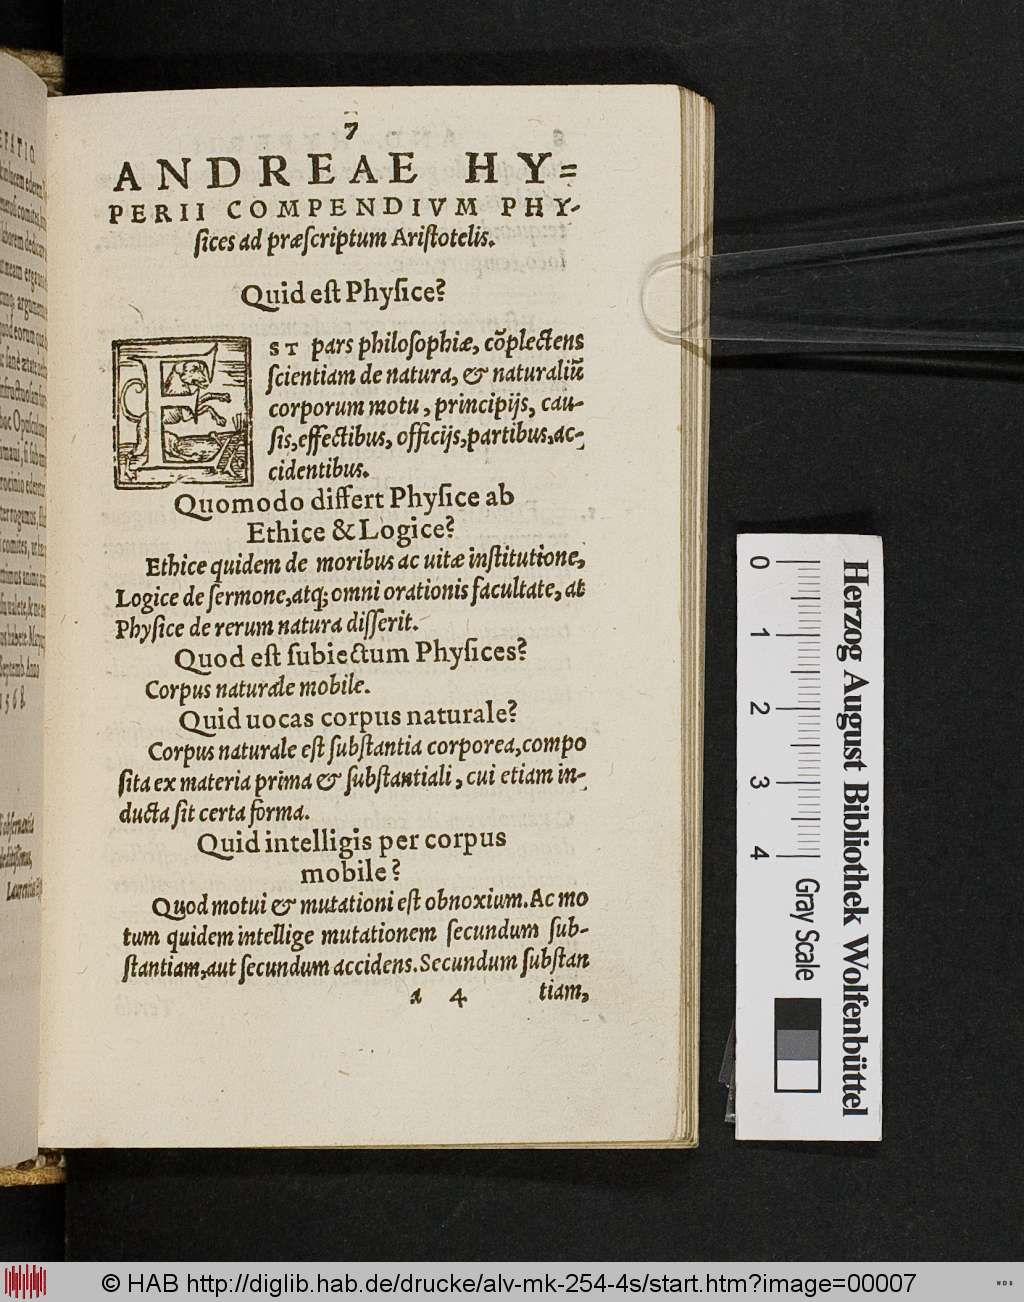 7
ANDREAE HY=
PERII COMPENDIVM PHY-
ſices ad præſcriptum Ariſtotelis.
Quid eſt Phyſice?
EST pars philoſophiæ, cõplectens
ſcientiam de natura, & naturaliũ
corporum motu, principijs, cau-
ſis, effectibus, officijs, partibus, ac-
cidentibus.
Quomodo differt Phyſice ab
Ethice & Logice?
Ethice quidem de moribus ac uitæ inſtitutione,
Logice de ſermone, atq; omni orationis facultate, at
Phyſice de rerum natura diſſerit.
Quod eſt ſubiectum Phyſices?
Corpus naturale mobile.
Quid uocas corpus naturale?
Corpus naturale eſt ſubſtantia corporea, compo
ſita ex materia prima & ſubſtantiali, cui etiam in-
ducta ſit certa forma.
Quid intelligis per corpus
mobile?
Quod motui & mutationi eſt obnoxium. Ac mo
tum quidem intellige mutationem ſecundum ſub-
ſtantiam, aut ſecundum accidens. Secundum ſubſtan
a 4 tiam,
0 1 2 3 4
Gray Scale
Herzog August Bibliothek Wolfenbüttel
© HAB http://diglib.hab.de/drucke/alv-mk-254-4s/start.htm?image=00007